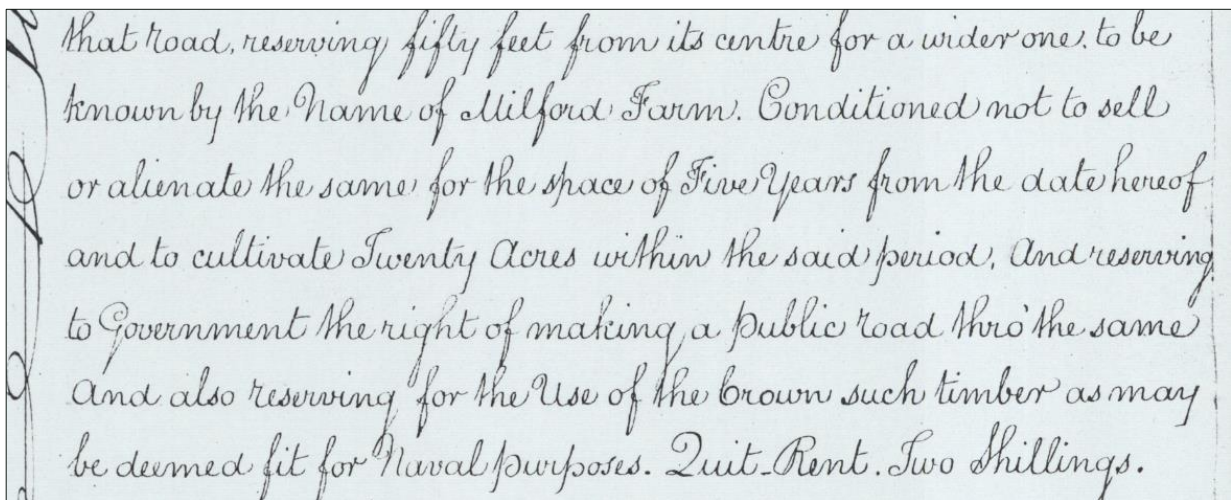 that road, reserving fifty feet from its centre for a wider one, to be
known by the Name of Milford Farm. Conditioned not to sell
or alienate the same for the space of Five Years from the date hereof
and to cultivate Twenty Acres within the said period, And reserving
to Government the right of making a public road thro' the same
And also reserving for the Use of the Crown such timber as may
be deemed fit for Naval purposes. Quit-Rent. Two Shillings.